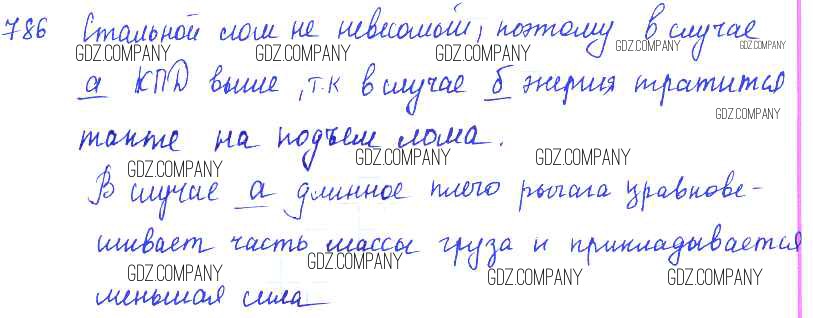 786 Стальной лом не невесомый, поэтому в случае
GDZ.COMPANY GDZ.COMPANY GDZ.COMPANY GDZ.COMPANY GDZ.COMPANY
а КПД выше, т.к в случае б энергия тратится
GDZ.COMPANY
также на подъем лома.
GDZ.COMPANY GDZ.COMPANY GDZ.COMPANY
В случае а длинное плечо рычага уравнове-
шивает часть массы груза и прикладывается
GDZ.COMPANY GDZ.COMPANY GDZ.COMPANY GDZ.COMPANY
меньшая сила